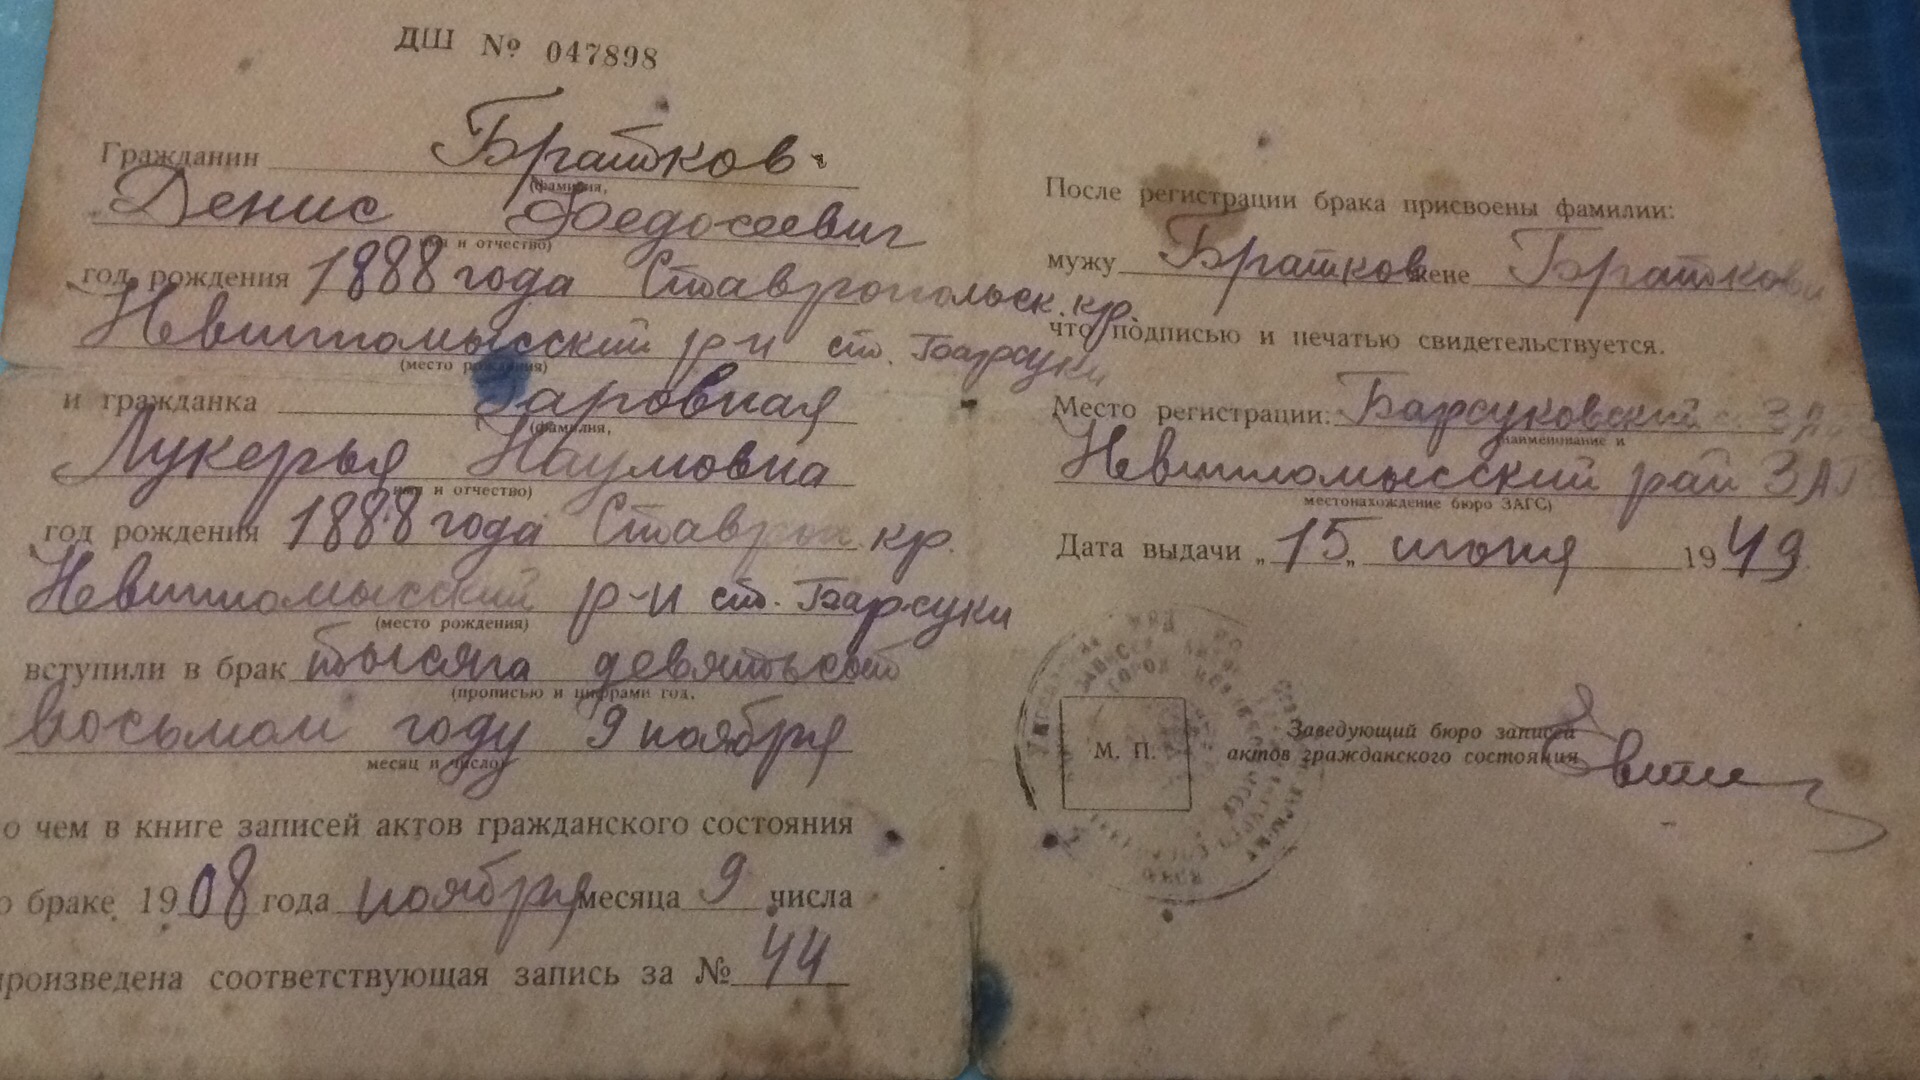 ДШ № 047898
Гражданин Братков.
(фамилия,
Денис Федосеевич
имя и отчество)
год рождения 1888 года Ставропольск. кр.
Невинномысский р-н ст. Барсуки
(место рождения)
и гражданка
(фамилия,
Лукерья Наумовна
имя и отчество)
год рождения 1888 года Ставроп. кр.
Невинномысский р-н ст. Барсуки
(место рождения)
вступили в брак тысяча девятьсот
(прописью и цифрами год,
восьмом году 9 ноября
месяц и число)
о чем в книге записей актов гражданского состояния
о браке 1908 года ноября месяца 9 числа
произведена соответствующая запись за № 44
После регистрации брака присвоены фамилии:
мужу Братков жене Браткова
что подписью и печатью свидетельствуется.
Место регистрации: Барсуковский ЗАГС
(наименование и
Невинномысский рай ЗАГС
местонахождение бюро ЗАГС)
Дата выдачи „15„ июня 1949
М. П.
Заведующий бюро записей
актов гражданского состояния